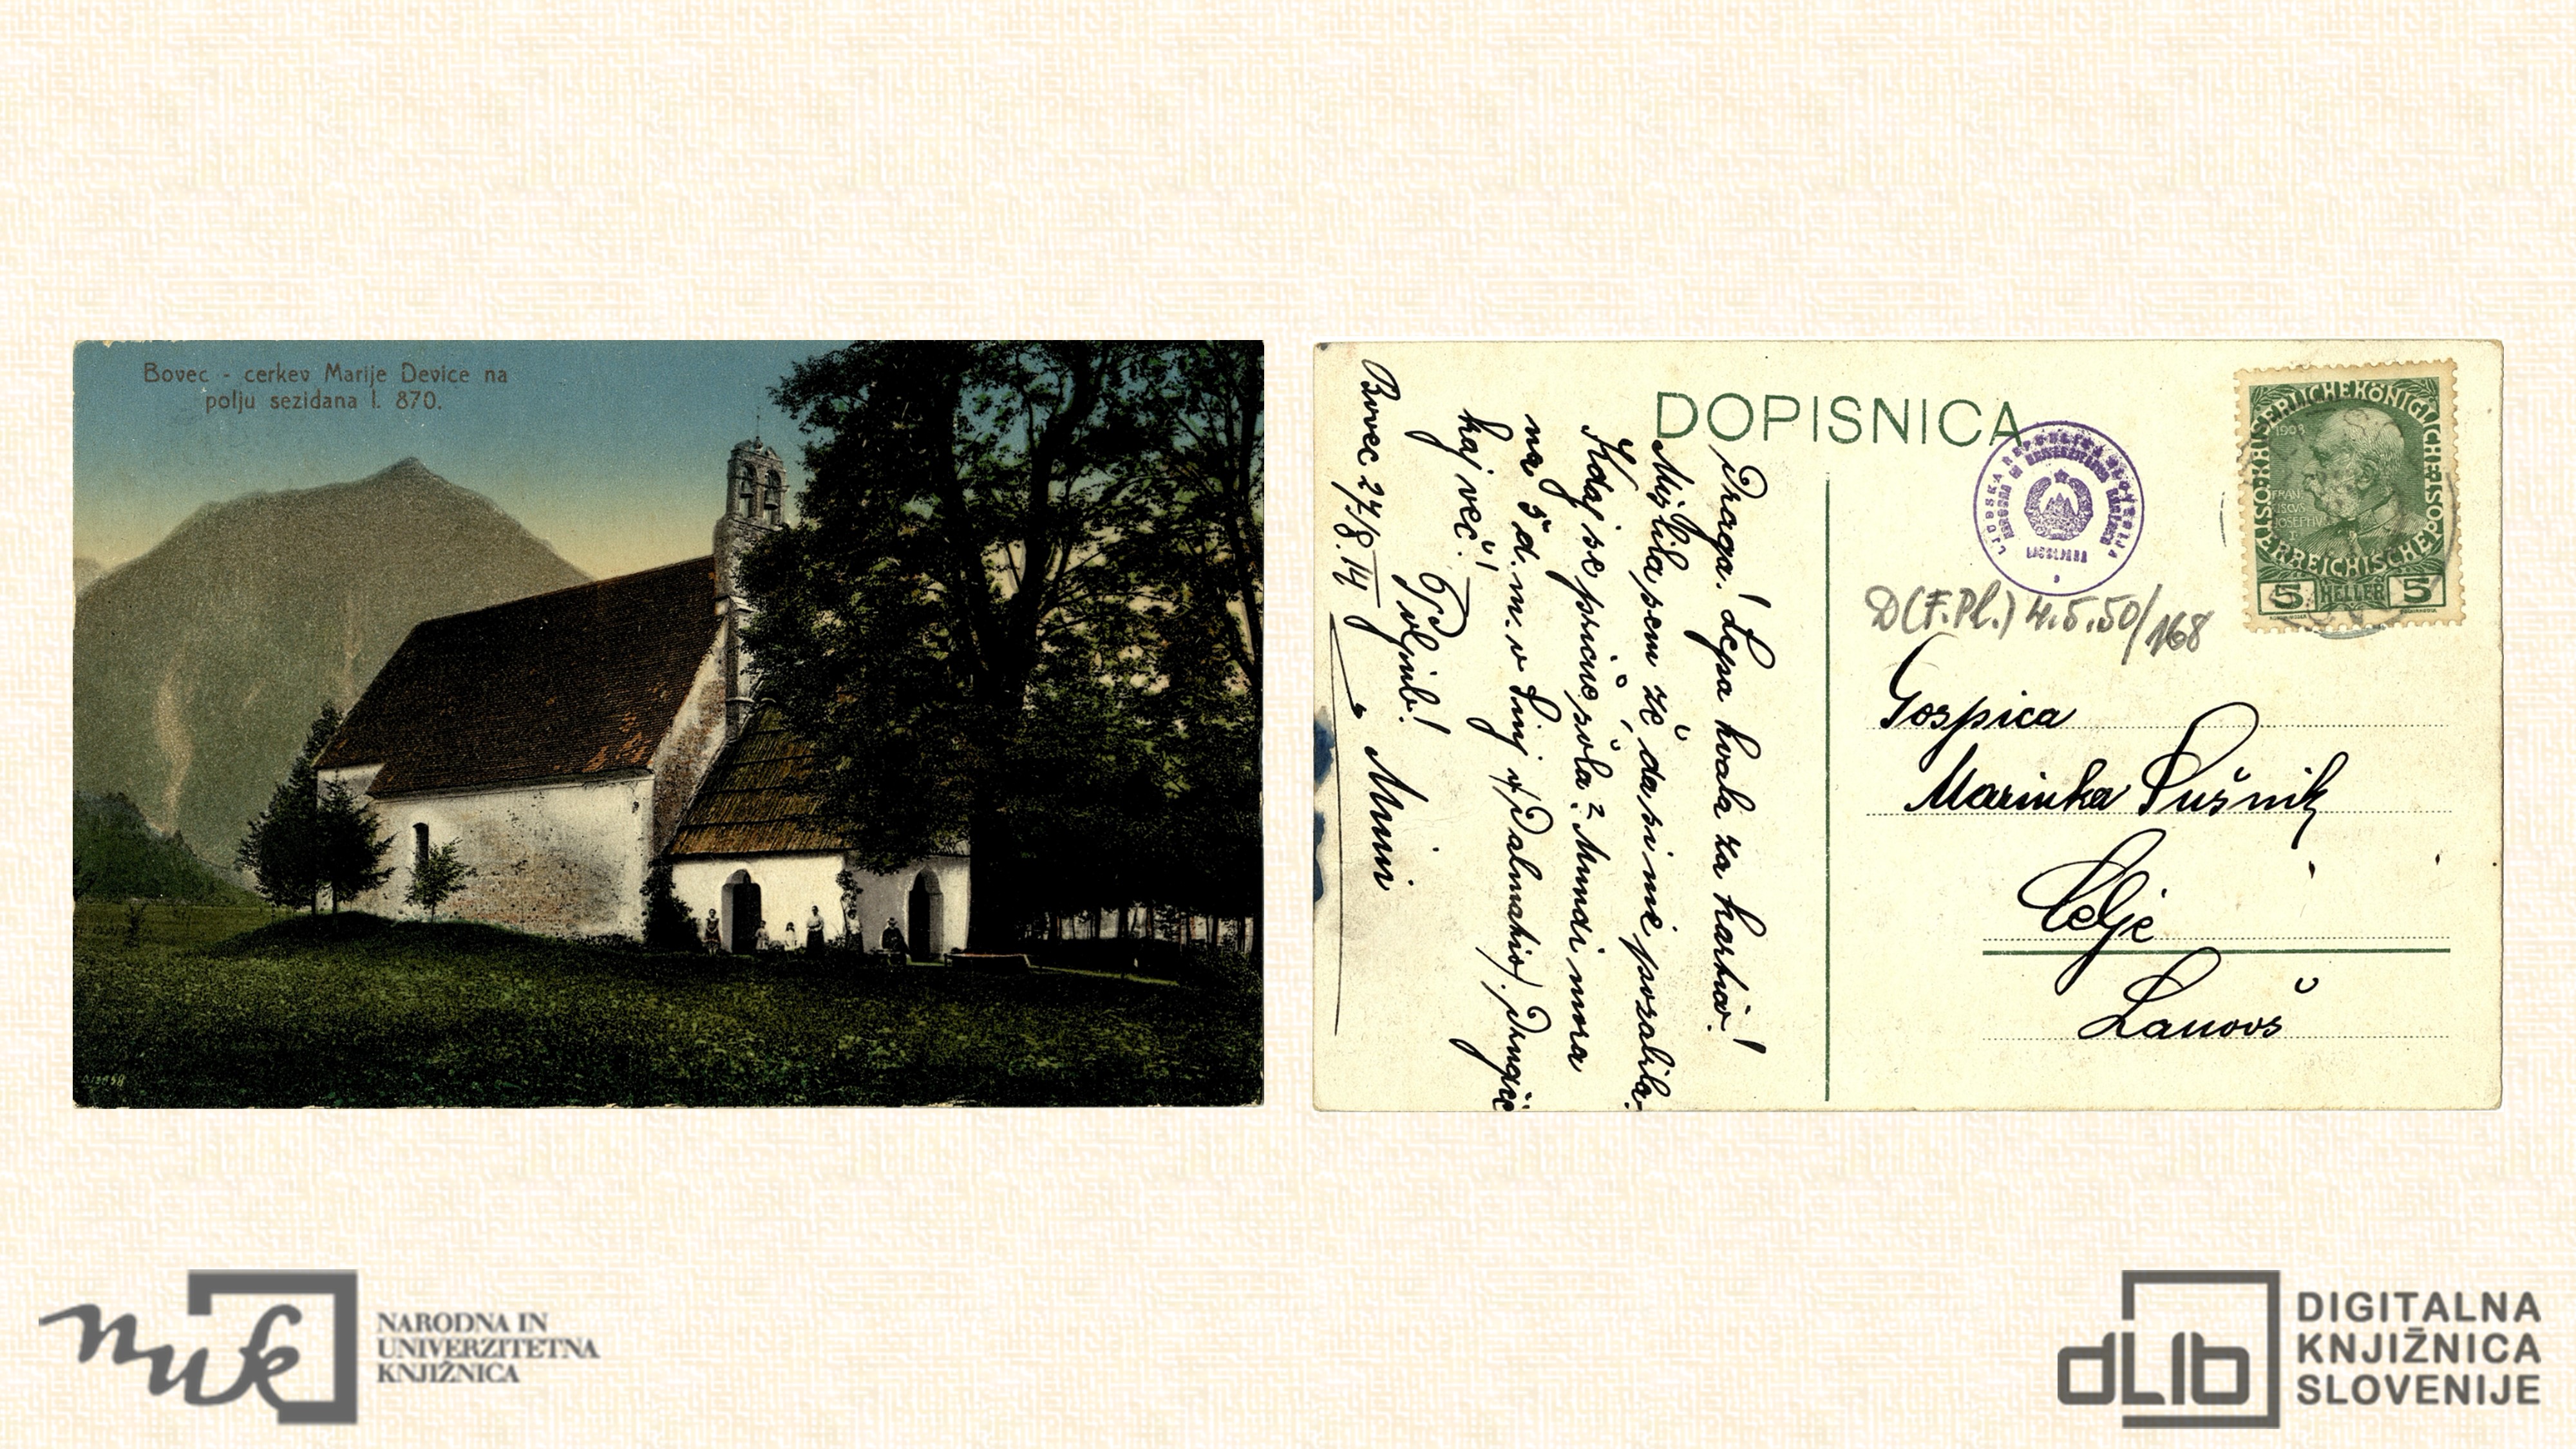 Bovec - cerkev Marije Device na
polju sezidana l. 870.
013858
DOPISNICA
Draga! Lepa hvala za karto!
Mislila sem že, da si me pozabila.
Kdaj se prične šola? Mundi mora
na 5 d. m. v Sinj v Dalmatio). Drugič
kaj več!
Poljub!
Mimi
Bovec 27/8. 14
KAISERLICHE KÖNIGLICHE
ÖSTERREICHISCHE POST
1908
FRAN
CISCVS
JOSEPHVS
I
5 HELLER 5
LJUDSKA REPUBLIKA SLOVENIJA
NARODNA IN UNIVERZITETNA KNJIŽNICA
LJUBLJANA
D (F. Pl.) 4. 5. 50/168
Gospica
Marinka Pušnik
Celje
Lanovš
nuk
NARODNA IN
UNIVERZITETNA
KNJIŽNICA
dLib
DIGITALNA
KNJIŽNICA
SLOVENIJE